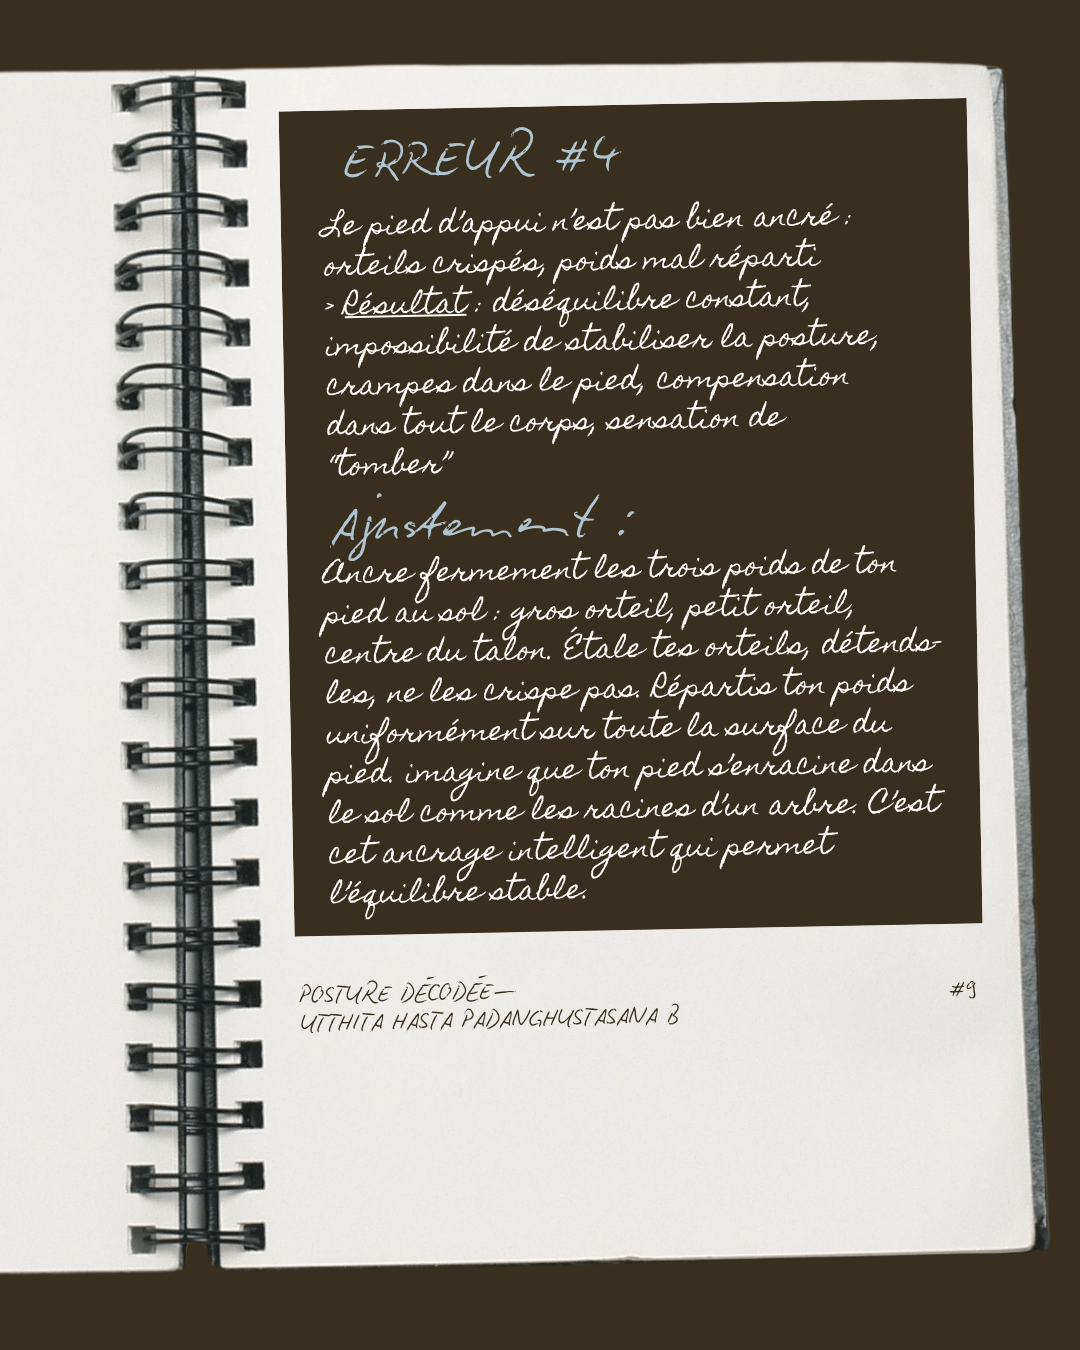 ERREUR #4
Le pied d'appui n'est pas bien ancré :
orteils crispés, poids mal réparti
> Résultat : déséquilibre constant,
impossibilité de stabiliser la posture,
crampes dans le pied, compensation
dans tout le corps, sensation de
"tomber"
Ajustement :
Ancre fermement les trois poids de ton
pied au sol : gros orteil, petit orteil,
centre du talon. Étale tes orteils, détends-
les, ne les crispe pas. Répartis ton poids
uniformément sur toute la surface du
pied. imagine que ton pied s'enracine dans
le sol comme les racines d'un arbre. C'est
cet ancrage intelligent qui permet
l'équilibre stable.
POSTURE DÉCODÉE—
UTTHITA HASTA PADANGHUSTASANA B
#9